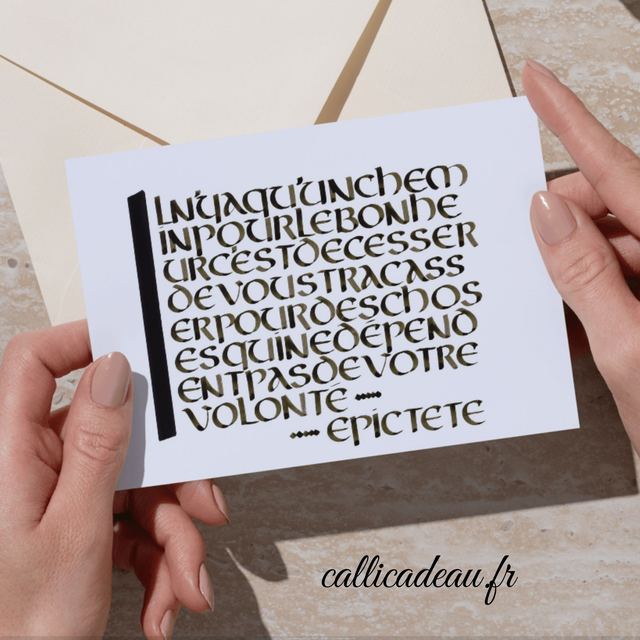 IL N'Y A QU'UN CHEM
IN POUR LE BONHE
UR C'EST DE CESSER
DE VOUS TRACASS
ER POUR DES CHOS
ES QUI NE DEPEND
ENT PAS DE VOTRE
VOLONTÉ
EPICTETE
callicadeau.fr